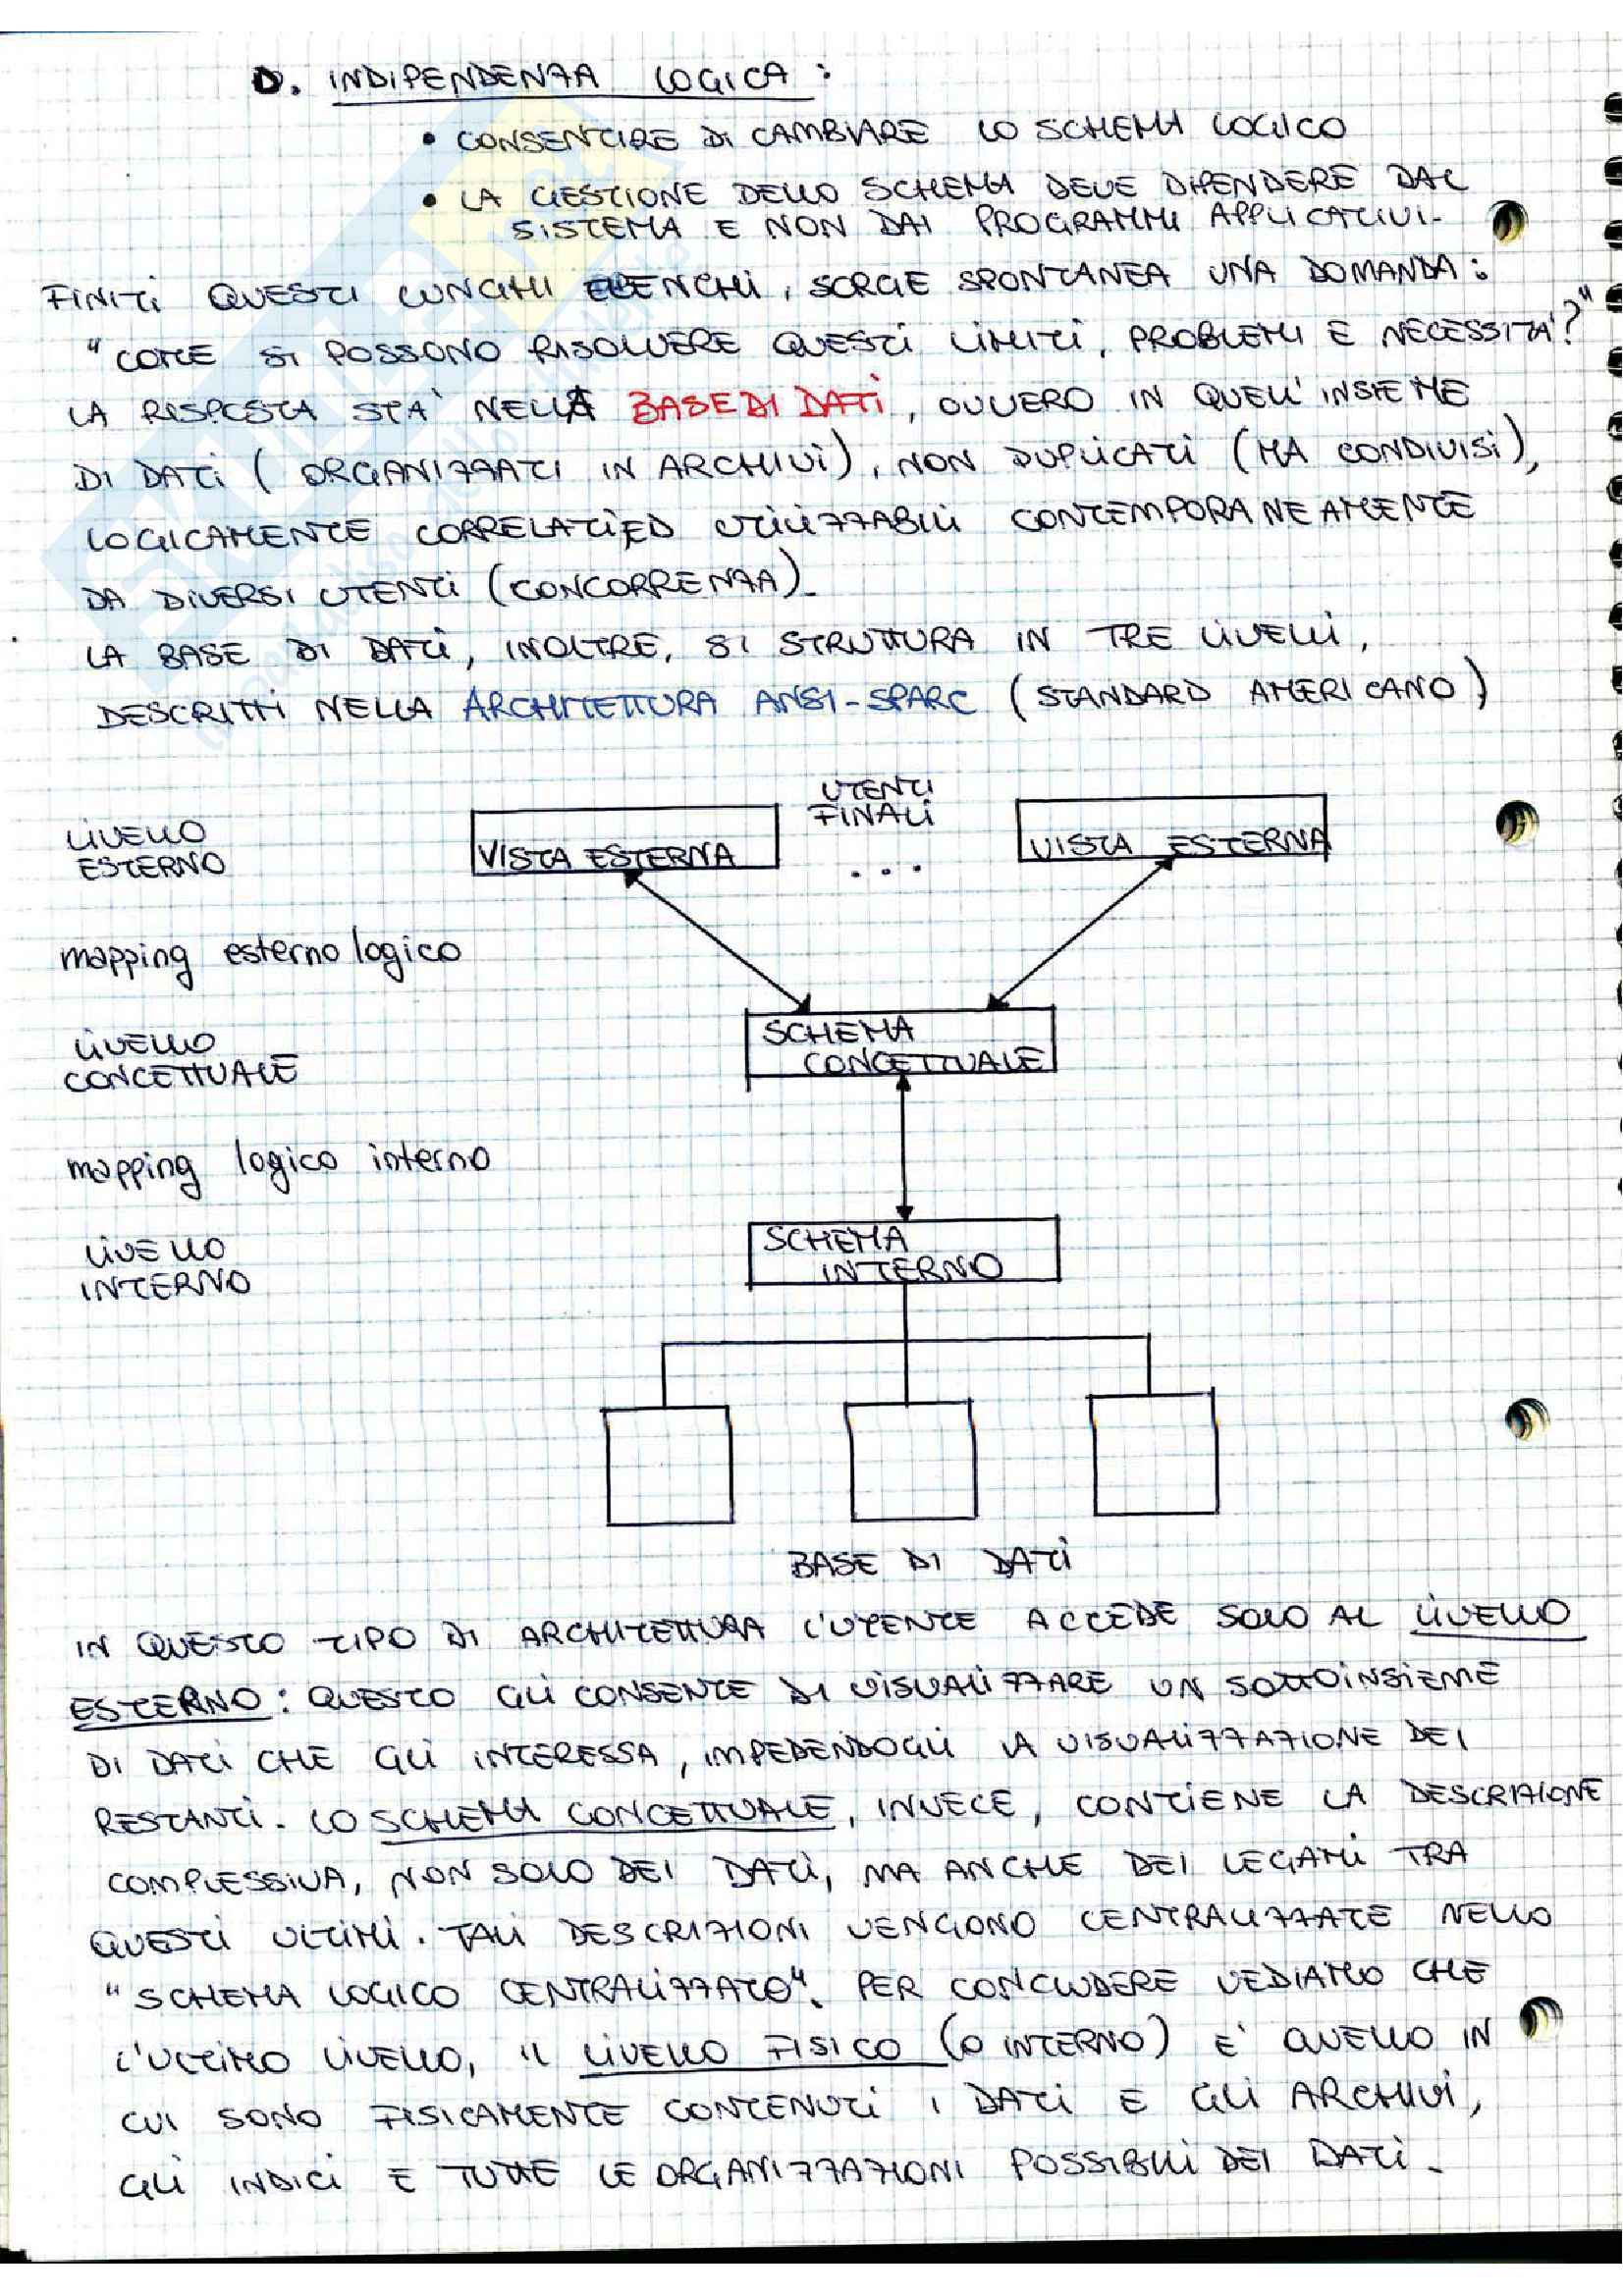 D. INDIPENDENZA LOGICA:
• CONSENTIRE DI CAMBIARE LO SCHEMA LOGICO
• LA GESTIONE DELLO SCHEMA DEVE DIPENDERE DAL
SISTEMA E NON DAI PROGRAMMI APPLICATIVI.
FINITI QUESTI LUNGHI ELENCHI, SORGE SPONTANEA UNA DOMANDA:
"COME SI POSSONO RISOLVERE QUESTI LIMITI, PROBLEMI E NECESSITA'?"
LA RISPOSTA STA' NELLA BASE DI DATI, OVVERO IN QUELL'INSIEME
DI DATI (ORGANIZZATI IN ARCHIVI), NON DUPLICATI (MA CONDIVISI),
LOGICAMENTE CORRELATI ED UTILIZZABILI CONTEMPORANEAMENTE
DA DIVERSI UTENTI (CONCORRENZA).
LA BASE DI DATI, INOLTRE, SI STRUTTURA IN TRE LIVELLI,
DESCRITTI NELLA ARCHITETTURA ANSI-SPARC (STANDARD AMERICANO)
UTENTI
FINALI
LIVELLO
ESTERNO
VISTA ESTERNA
...
VISTA ESTERNA
mapping esterno logico
LIVELLO
CONCETTUALE
SCHEMA
CONCETTUALE
mapping logico interno
LIVELLO
INTERNO
SCHEMA
INTERNO
BASE DI DATI
IN QUESTO TIPO DI ARCHITETTURA L'UTENTE ACCEDE SOLO AL LIVELLO
ESTERNO: QUESTO GLI CONSENTE DI VISUALIZZARE UN SOTTOINSIEME
DI DATI CHE GLI INTERESSA, IMPEDENDOGLI LA VISUALIZZAZIONE DEI
RESTANTI. LO SCHEMA CONCETTUALE, INVECE, CONTIENE LA DESCRIZIONE
COMPLESSIVA, NON SOLO DEI DATI, MA ANCHE DEI LEGAMI TRA
QUESTI ULTIMI. TALI DESCRIZIONI VENGONO CENTRALIZZATE NELLO
"SCHEMA LOGICO CENTRALIZZATO". PER CONCLUDERE VEDIAMO CHE
L'ULTIMO LIVELLO, IL LIVELLO FISICO (O INTERNO) E' QUELLO IN
CUI SONO FISICAMENTE CONTENUTI I DATI E GLI ARCHIVI,
GLI INDICI E TUTTE LE ORGANIZZAZIONI POSSIBILI DEI DATI.